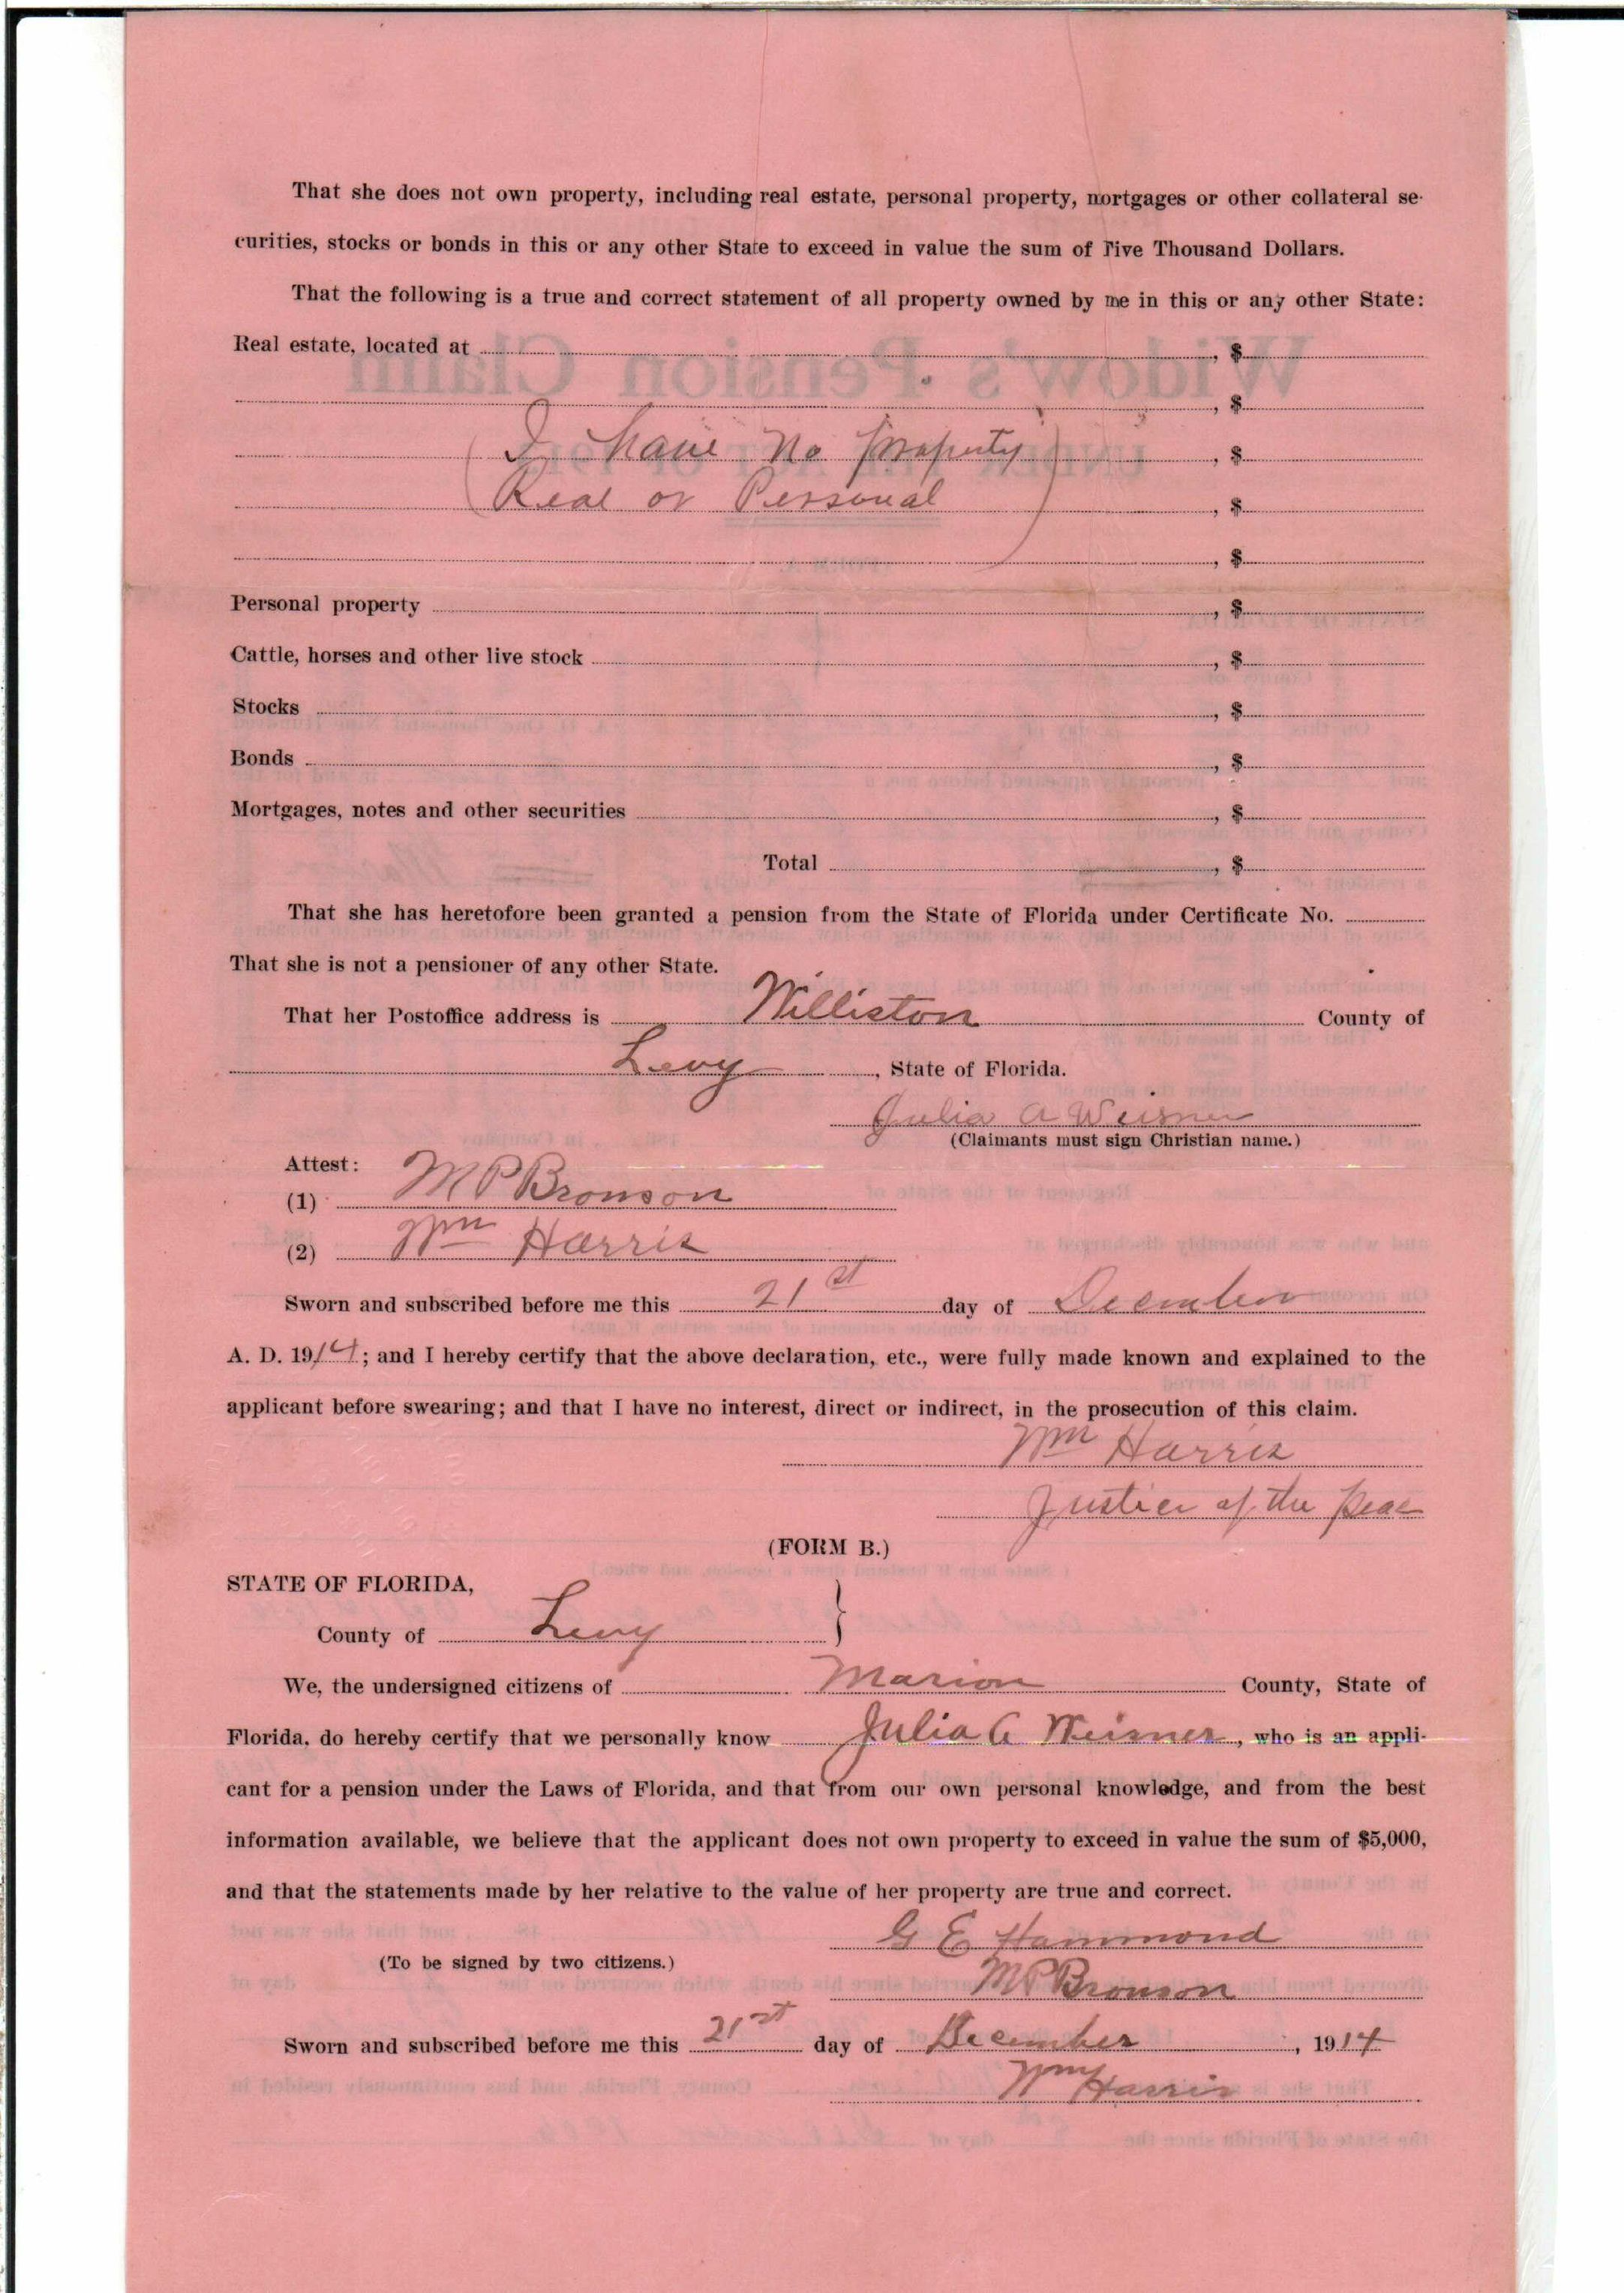 That she does not own property, including real estate, personal property, mortgages or other collateral se-
curities, stocks or bonds in this or any other State to exceed in value the sum of Five Thousand Dollars.
That the following is a true and correct statement of all property owned by me in this or any other State:
Real estate, located at , $
, $
I have no property , $
Real or Personal , $
, $
Personal property , $
Cattle, horses and other live stock , $
Stocks , $
Bonds , $
Mortgages, notes and other securities , $
Total , $
That she has heretofore been granted a pension from the State of Florida under Certificate No.
That she is not a pensioner of any other State.
That her Postoffice address is Williston County of
Levy , State of Florida.
Julia A Weisner
(Claimants must sign Christian name.)
Attest:
(1) M P Bronson
(2) Wm Harris
Sworn and subscribed before me this 21st day of December
A. D. 1914; and I hereby certify that the above declaration, etc., were fully made known and explained to the
applicant before swearing; and that I have no interest, direct or indirect, in the prosecution of this claim.
Wm Harris
Justice of the Peac
(FORM B.)
STATE OF FLORIDA,
County of Levy }
We, the undersigned citizens of Marion County, State of
Florida, do hereby certify that we personally know Julia A Weisner, who is an appli-
cant for a pension under the Laws of Florida, and that from our own personal knowledge, and from the best
information available, we believe that the applicant does not own property to exceed in value the sum of $5,000,
and that the statements made by her relative to the value of her property are true and correct.
G E Hammond
(To be signed by two citizens.)
M P Bronson
Sworn and subscribed before me this 21st day of December , 1914
Wm Harris